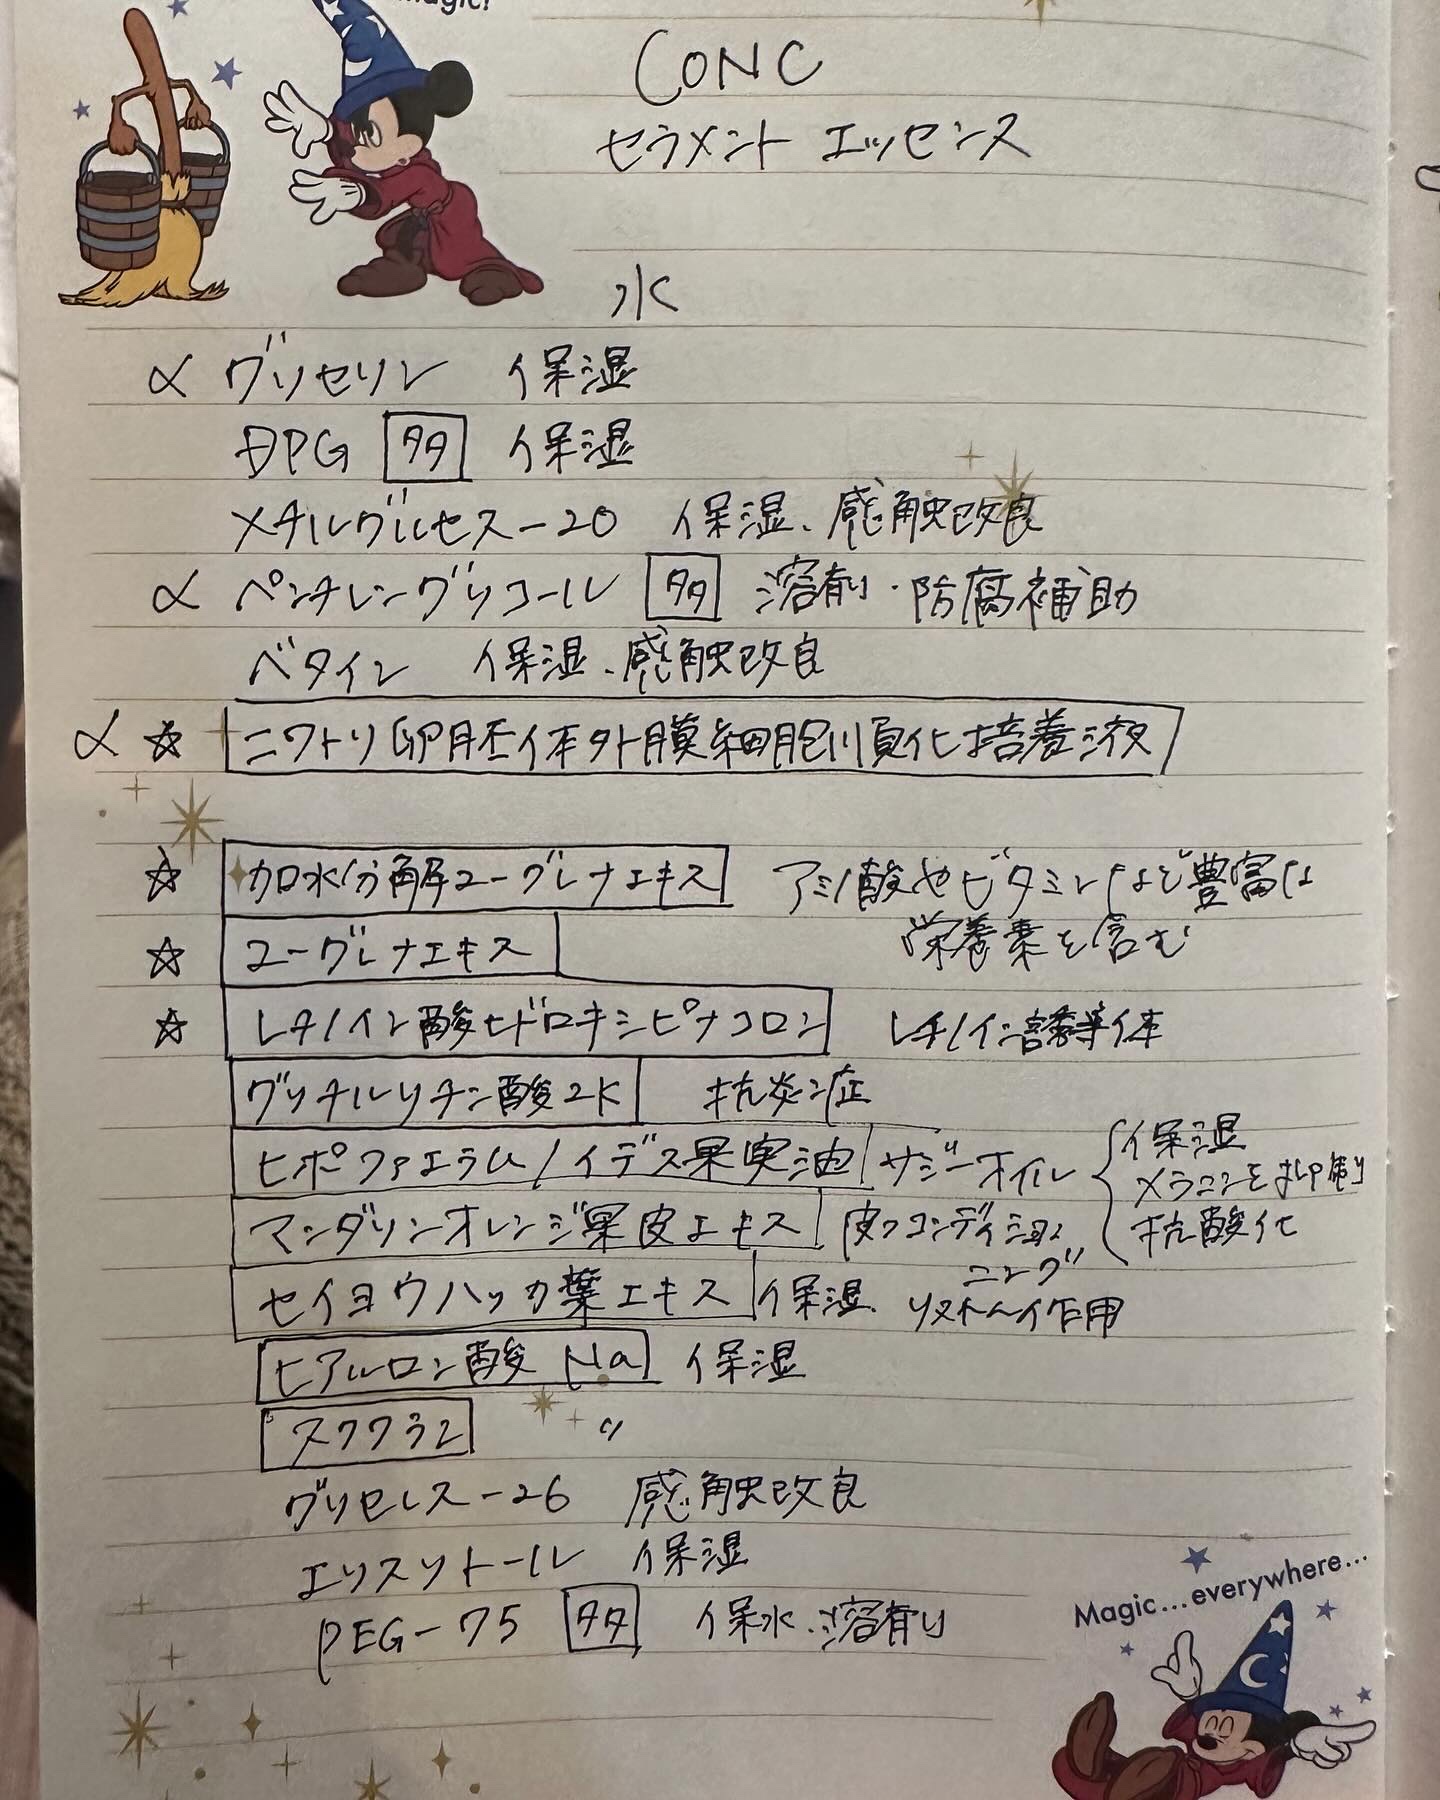 magic!
CONC
セラメント エッセンス
水
α グリセリン 保湿
DPG 多 保湿
メチルグルセス-20 保湿、感触改良
α ペンチレングリコール 多 溶剤・防腐補助
ベタイン 保湿、感触改良
α ☆ ニワトリ卵胚体外膜細胞順化培養液
☆ 加水分解ユーグレナエキス アミノ酸やビタミンなど豊富な
栄養素を含む
☆ ユーグレナエキス
☆ レチノイン酸ヒドロキシピナコロン レチノイン誘導体
グリチルリチン酸2K 抗炎症
ヒポファエラムノイデス果実油 サジーオイル { 保湿
メラニンを抑制
抗酸化
マンダリンオレンジ果皮エキス 皮フコンディショ
ニング
セイヨウハッカ葉エキス 保湿、リストへ作用
ヒアルロン酸Na 保湿
スクワラン 〃
グリセレス-26 感触改良
エリスリトール 保湿
PEG-75 多 保水、溶剤
Magic...everywhere...